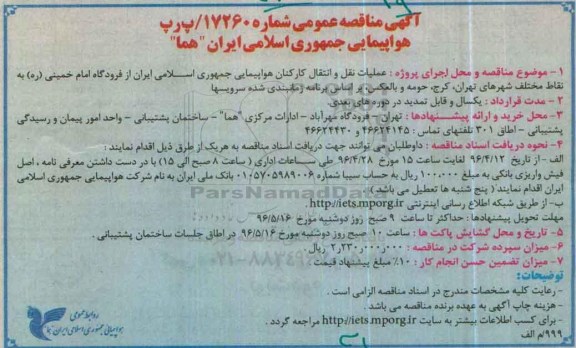 آگهی مناقصه عمومی شماره ۱۷۲۶۰/پ‌ر‌پ
هواپیمایی جمهوری اسلامی ایران "هما"
۱ - موضوع مناقصه و محل اجرای پروژه : عملیات نقل و انتقال کارکنان هواپیمایی جمهوری اسلامی ایران از فرودگاه امام خمینی (ره) به
نقاط مختلف شهرهای تهران، کرج، حومه و بالعکس بر اساس برنامه زمانبندی شده سرویسها
۲ - مدت قرارداد : یکسال و قابل تمدید در دوره های بعدی.
۳ - محل خرید و ارائه پیشنهادها : تهران - فرودگاه مهرآباد - ادارات مرکزی "هما" - ساختمان پشتیبانی - واحد امور پیمان و رسیدگی
پشتیبانی - اطاق ۳۰۱ تلفنهای تماس : ۴۶۶۲۴۱۴۵ و ۴۶۶۲۴۴۳۰
۴ - نحوه دریافت اسناد مناقصه : داوطلبان می توانند جهت دریافت اسناد مناقصه به هریک از طرق ذیل اقدام نمایند :
الف - از تاریخ ۹۶/۴/۱۲ لغایت ساعت ۱۵ مورخ ۹۶/۴/۲۸ طی ساعات اداری ( ساعت ۸ صبح الی ۱۵) با در دست داشتن معرفی نامه ، اصل
فیش واریزی بانکی به مبلغ ۱۰۰،۰۰۰ ریال به حساب سیبا شماره ۰۱۰۵۷۰۵۹۸۹۰۰۶ بانک ملی ایران به نام شرکت هواپیمایی جمهوری اسلامی
ایران اقدام نمایند ( پنج شنبه ها تعطیل می باشد)
ب- از طریق شبکه اطلاع رسانی اینترنتی http://iets.mporg.ir.
مهلت تحویل پیشنهادها : حداکثر تا ساعت ۹ صبح روز دوشنبه مورخ ۹۶/۵/۱۶
۵ - تاریخ و محل گشایش پاکت ها : ساعت ۱۰ صبح روز دوشنبه مورخ ۹۶/۵/۱۶ در اطاق جلسات ساختمان پشتیبانی .
۶ - میزان سپرده شرکت در مناقصه : ۲،۲۳۰،۰۰۰،۰۰۰ ریال
۷ - میزان تضمین حسن انجام کار : ۱۰٪ مبلغ پیشنهاد قیمت
توضیحات:
- رعایت کلیه مشخصات مندرج در اسناد مناقصه الزامی است .
- هزینه چاپ آگهی به عهده برنده مناقصه می باشد .
- برای کسب اطلاعات بیشتر به سایت http://iets.mporg.ir مراجعه گردد .
۹۹۹/م الف
روابط عمومی
هواپیمایی جمهوری اسلامی ایران هما
ParsNamadData